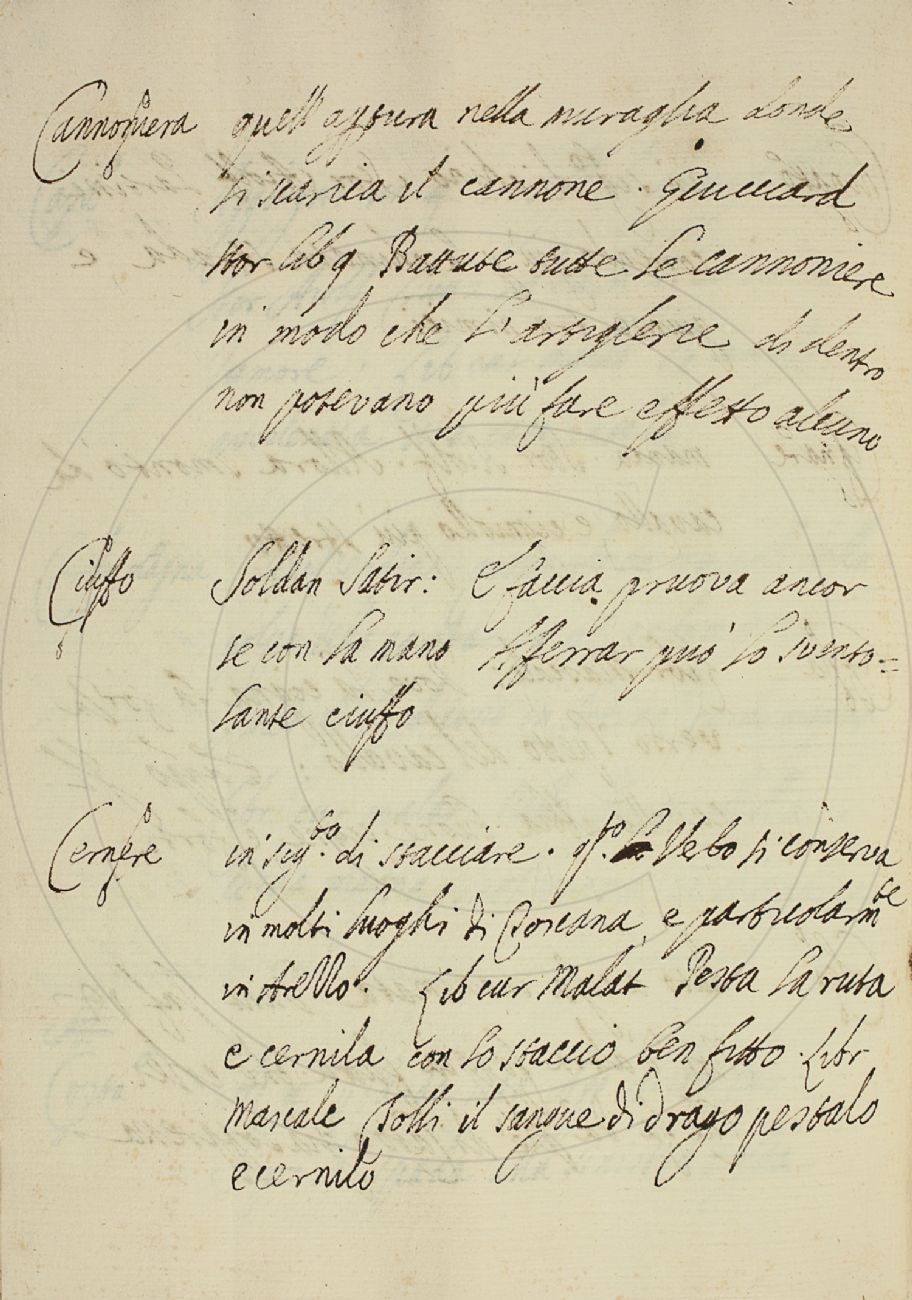 Cannoniera quell'apptura nella muraglia donde
si scarica il cannone. Guicciard
stor lib 9 Battute tutte le cannoniere
in modo che l'artiglerie di dentro
non potevano più fare effetto alcuno
Ciuffo Soldan Satir: E faccia pruova ancor
se con la mano Afferrar può lo svento=
lante ciuffo
Cernere in sig.to di stacciare. q.to Verbo si conserva
in molti luoghi di Toscana, e particolarm.te
in Lib cur Malat Pesta la ruta
e cernila con lo staccio ben fitto. Libr
Mascale Tolli il sangue di drago pestalo
e cernilo